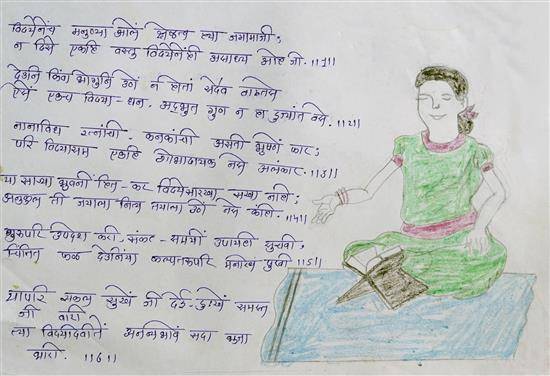 विद्येनेंच मनुष्या आलें श्रेष्ठत्व ह्या जगामाजी;
न दिसे एकहि वस्तु विद्येनेंही असाध्य आहे जी. ।।१।।
देउनि किंवा भोगुनि उणें न होतां सदैव वाढतसे
ऐसें एकच विद्या-धन, अद्भुत गुण न हा दुज्यांत वसे. ।।२।।
नानाविध रत्नांची कनकांची असती भूषणें फार;
परि विद्यासम एकहि शोभादायक नसे अलंकार. ।।३।।
या साऱ्या भुवनीं हित-कर विद्येसारखा सखा नाहीं;
अनुकूल ती जयाला नित्य तयाला उणें नसे कांहीं. ।।४।।
गुरुपरि उपदेश करी, संकट-समयीं उपायही सुचवी;
चिंतित फळ देउनिया कल्पतरूपरि मनोरथा पुरवी ।।५।।
यापरि सकल सुखें जी देई-दुःखें समस्त
जी वारी
त्या विद्यादेवीतें अनन्यभावें सदा भजा
भारी. ।।६।।